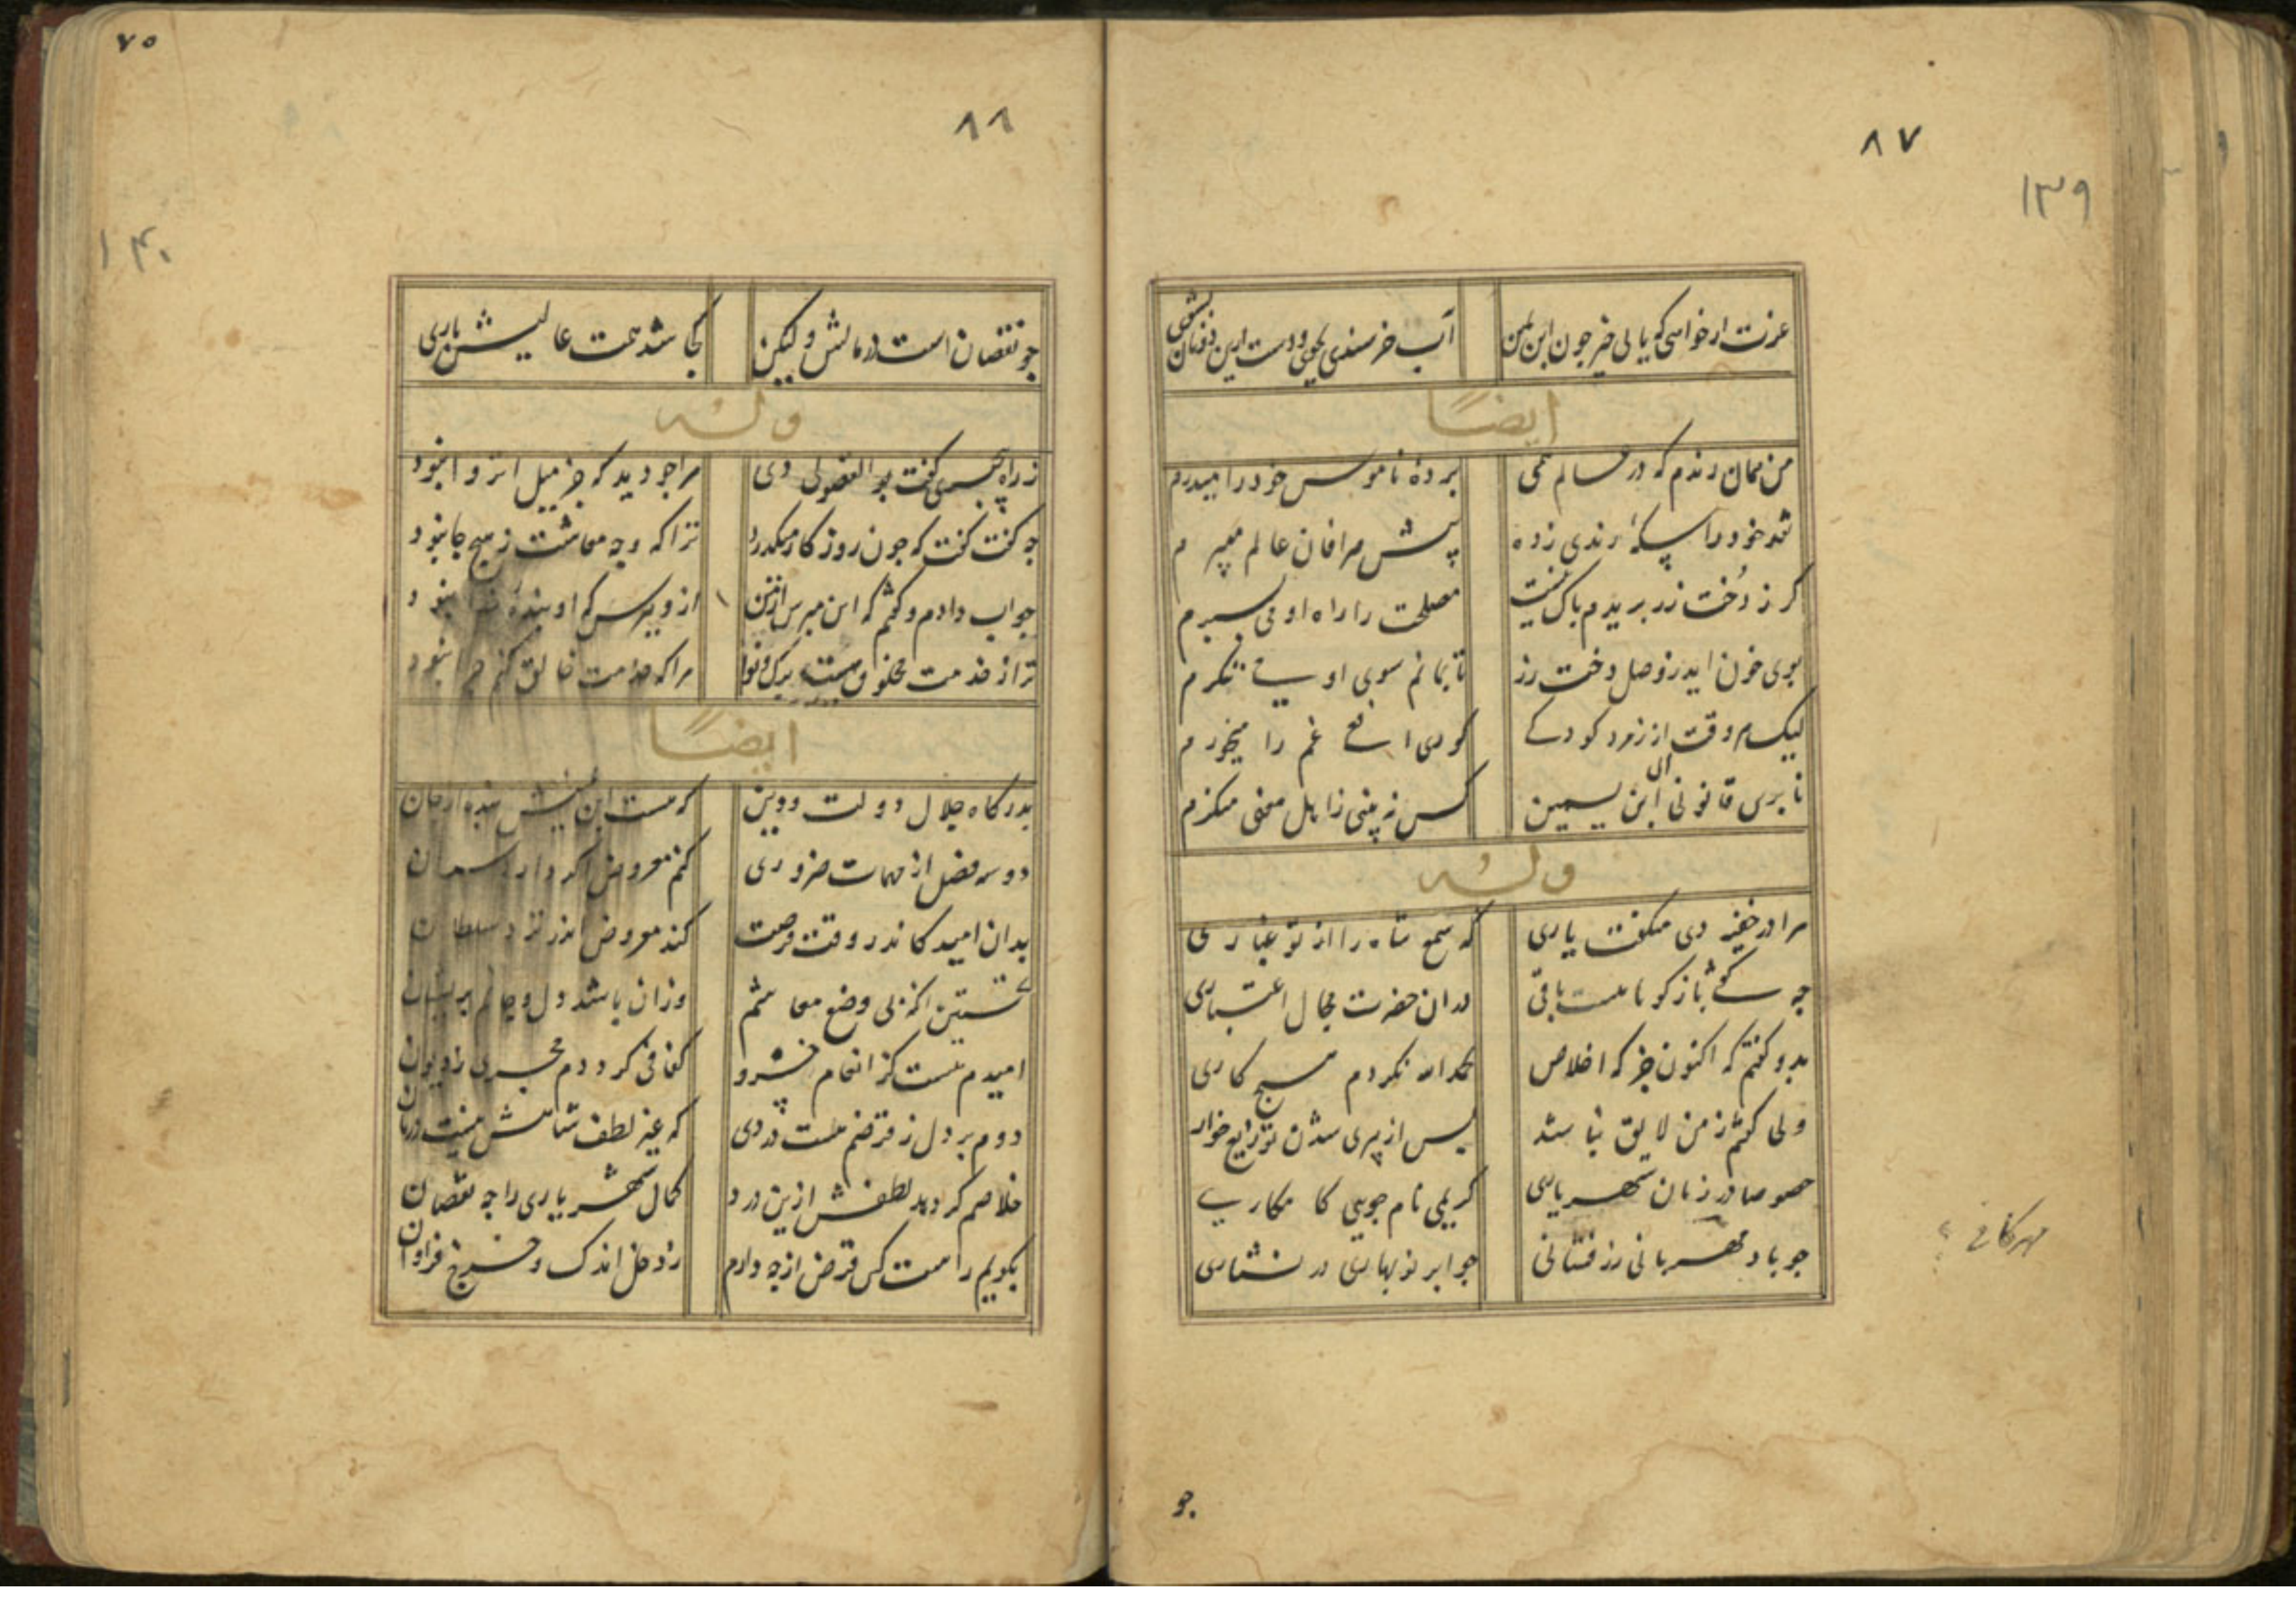 ۸۷
۱۳۹
عزت ار خواهی که یابی خیز چون ابن یمین
آب خرسندی بجوی و دست ازین دونان بشوی
ایضاً
من همان رندم که در عالم همی
پرده ناموس خود را میدرم
نقد خود را سکهٔ رندی زده
پیش صرافان عالم میبرم
گر ز دخت رز بریدم باک نیست
مصلحت را راه او می‌نسپرم
بوی خون آید ز وصل دخت رز
تا نمانم سوی او می‌ننگرم
لیک هر وقت از زمرد کودکی
افعی غم را میخورم
تا بری قانونی ابن یمین
الی
کس نه بینی زاهل معنی منکرم
وله
مرا در خفیه دی میگفت یاری
که شمع شاه را از تو غباری
چه گوئی باز گو تا هست باقی
در ان حضرت مجال اعتباری
بدو گفتم که اکنون جز که اخلاص
بحمدالله نکردم هیچ کاری
ولی گفتم ز من لایق نباشد
پس از پیری شدن توزیع خوار
خصوصا در زمان شهریاری
کریمی نام جویی کامکاری
چو باد مهربانی زر فشانی
چو ابر نوبهاری در نثاری
مهرگانی ؟
چو
۷۵
۸۸
۱۴۰
چو نقصان است در مالش ولیکن
کجا شد همت عالیش باری
وله
ز راه تجسس گفت بوالفضولی دی
مرا چو دید که جز میل انزوا نبود
چه گفت گفت که چون روزگار میگذرد
ترا که وجه معاشت ز هیچ جا نبود
جواب دادم و گفتم که این مپرس از من
ازو بپرس که او بندهٔ خدا نبود
ترا ز خدمت مخلوق هست برگ و نوا
مرا که خدمت خالق کنم چرا نبود
ایضاً
بدرگاه جلال دولت و دین
که هست این پیش بنده از جان
دو سه فصل از مهمات ضروری
کنم معروض اگر دارد
بدان امید کاندر وقت فرصت
کند معروض اندر نزد سلطان
نخستین آنکه بی وضع معاشم
وزان باشد دل و جانم پریشان
امیدم هست کز انعام خسرو
کفافی گرددم مجری ز دیوان
دوم بر دل ز قرضم هست دردی
که غیر لطف شاهش نیست درمان
خلاصم گر دهد لطفش ازین درد
کمال شهریاری را چه نقصان
بگویم راست کین قرض از چه دارم
ز دخل اندک و خرج فراوان